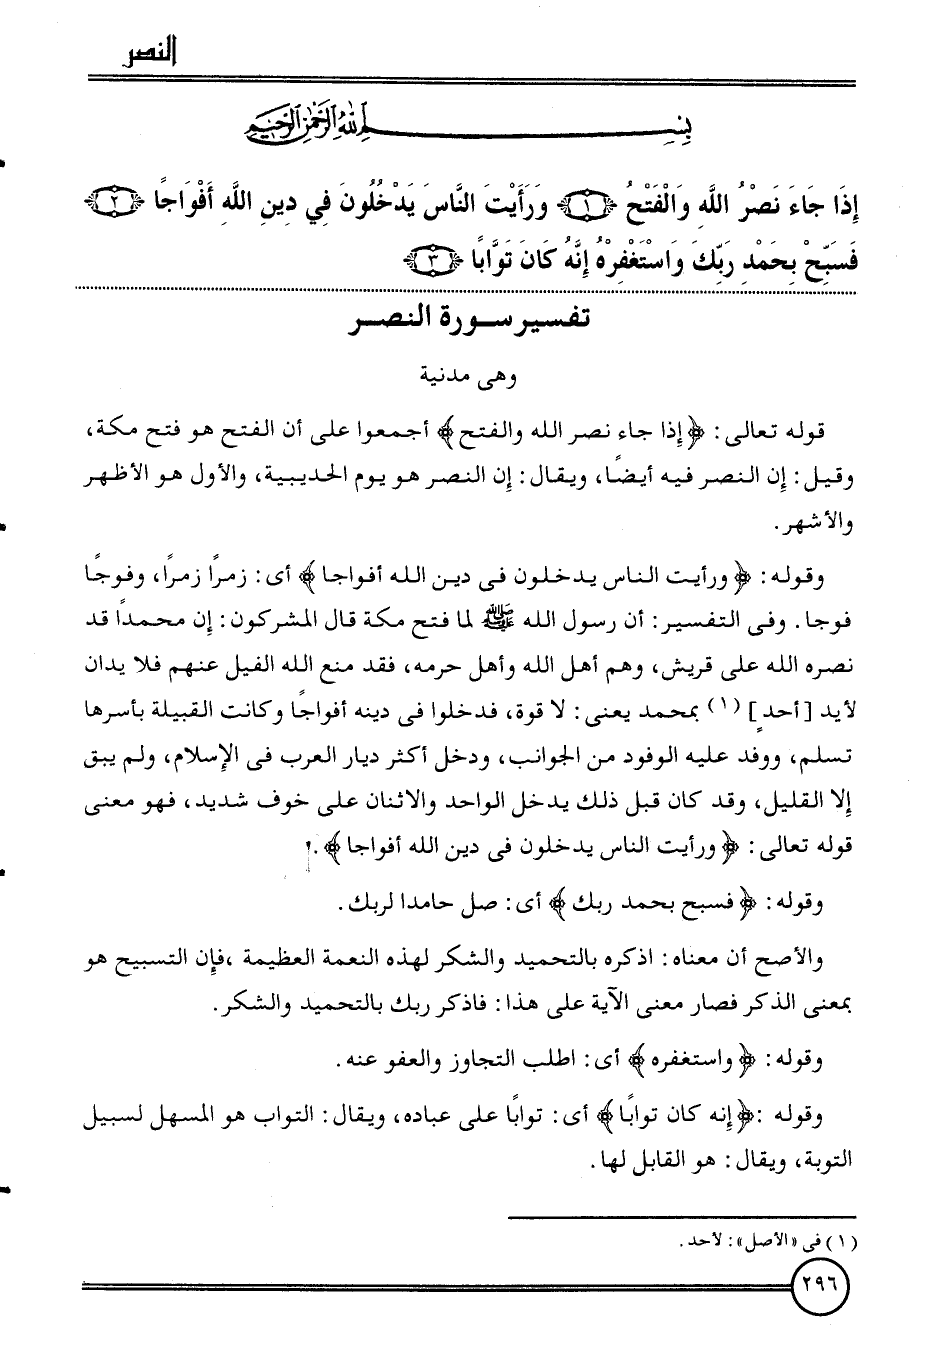 النصر
بسم الله الرحمن الرحيم
إِذَا جَاءَ نَصْرُ اللَّهِ وَالْفَتْحُ ﴿١﴾ وَرَأَيْتَ النَّاسَ يَدْخُلُونَ فِي دِينِ اللَّهِ أَفْوَاجًا ﴿٢﴾
فَسَبِّحْ بِحَمْدِ رَبِّكَ وَاسْتَغْفِرْهُ إِنَّهُ كَانَ تَوَّابًا ﴿٣﴾
تفسير سورة النصر
وهى مدنية
قوله تعالى: ﴿إذا جاء نصر الله والفتح﴾ أجمعوا على أن الفتح هو فتح مكة،
وقيل: إن النصر فيه أيضًا، ويقال: إن النصر هو يوم الحديبية، والأول هو الأظهر
والأشهر.
وقوله: ﴿ورأيت الناس يدخلون فى دين الله أفواجا﴾ أى: زمرًا زمرًا، وفوجًا
فوجا. وفى التفسير: أن رسول الله ﷺ لما فتح مكة قال المشركون: إن محمدًا قد
نصره الله على قريش، وهم أهل الله وأهل حرمه، فقد منع الله الفيل عنهم فلا يدان
لأيد [أحدٍ] (١) بمحمد يعنى: لا قوة، فدخلوا فى دينه أفواجًا وكانت القبيلة بأسرها
تسلم، ووفد عليه الوفود من الجوانب، ودخل أكثر ديار العرب فى الإسلام، ولم يبق
إلا القليل، وقد كان قبل ذلك يدخل الواحد والاثنان على خوف شديد، فهو معنى
قوله تعالى: ﴿ورأيت الناس يدخلون فى دين الله أفواجا﴾.
وقوله: ﴿فسبح بحمد ربك﴾ أى: صل حامدا لربك.
والأصح أن معناه: اذكره بالتحميد والشكر لهذه النعمة العظيمة ،فإن التسبيح هو
بمعنى الذكر فصار معنى الآية على هذا: فاذكر ربك بالتحميد والشكر.
وقوله: ﴿واستغفره﴾ أى: اطلب التجاوز والعفو عنه.
وقوله :﴿إنه كان توابًا﴾ أى: توابًا على عباده، ويقال: التواب هو المسهل لسبيل
التوبة، ويقال: هو القابل لها.
(١) فى «الأصل»: لأحد.
٢٩٦